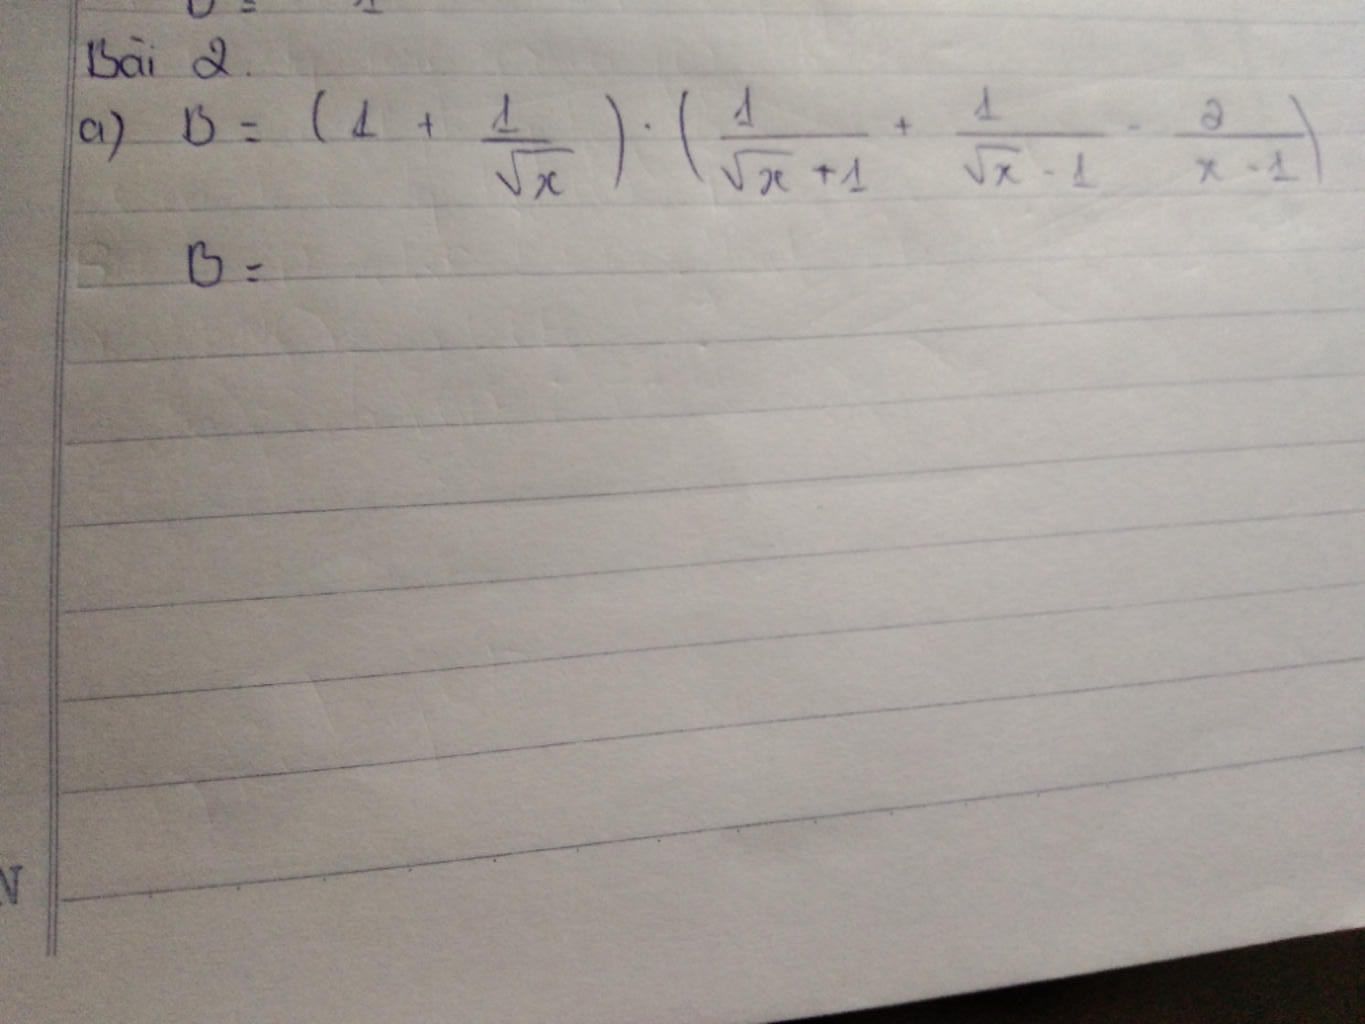 Bài 2.
a) B = (1 + 1/√x) · (1/(√x + 1) + 1/(√x - 1) - 2/(x - 1))
B =
N